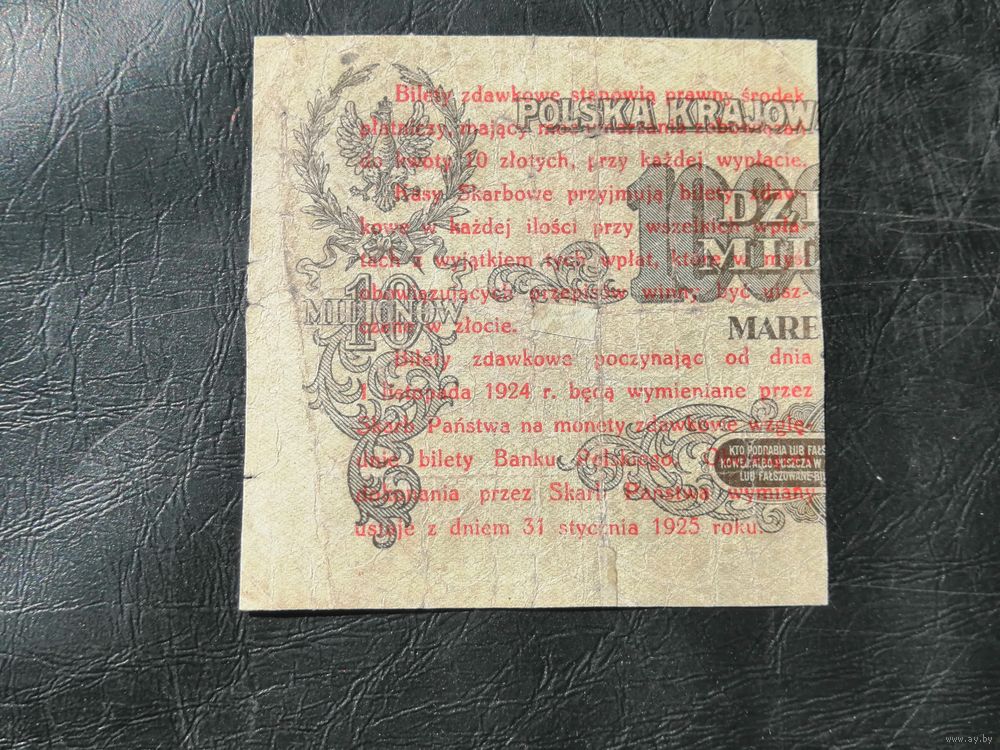 Bilety zdawkowe stanowią prawny środek
płatniczy, mający moc umarzania zobowiązań
do kwoty 10 złotych, przy każdej wypłacie.
Kasy Skarbowe przyjmują bilety zdaw-
kowe w każdej ilości przy wszelkich wpła-
tach z wyjątkiem tych wpłat, które w myśl
obowiązujących przepisów winny być uisz-
czane w złocie.
Bilety zdawkowe poczynając od dnia
1 listopada 1924 r. będą wymieniane przez
Skarb Państwa na monety zdawkowe wzglę-
dnie bilety Banku Polskiego.
dokonania przez Skarb Państwa wymiany
ustaje z dniem 31 stycznia 1925 roku.
POLSKA KRAJOWA
DZI
MILI
MARE
10
MILIONÓW
KTO PODRABIA LUB FAŁS
LUB FAŁSZOWANE BI
www.ay.by